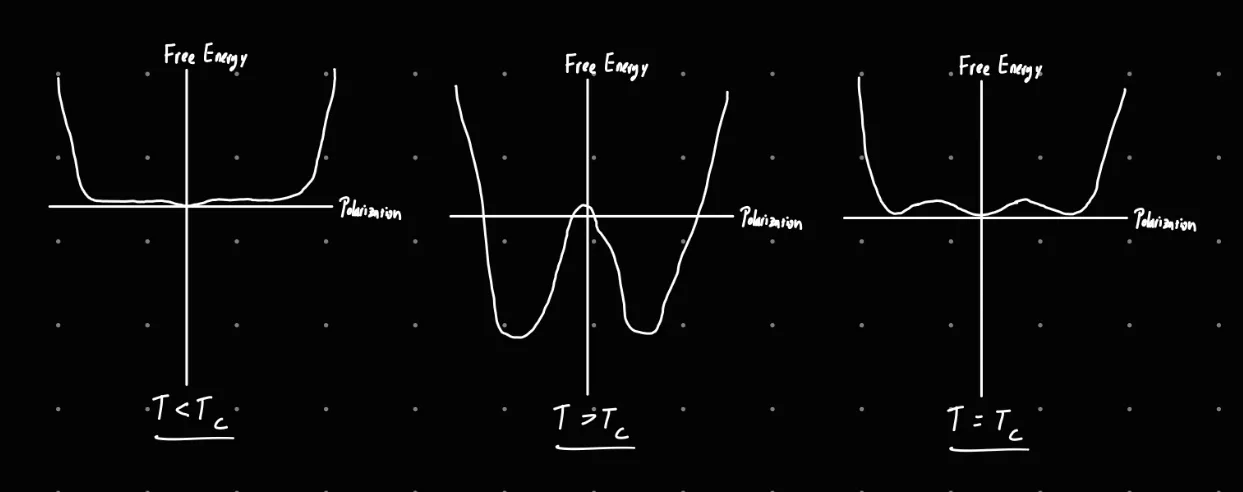 Free Energy
Polarization
T < Tc
Free Energy
Polarization
T > Tc
Free Energy
Polarization
T = Tc